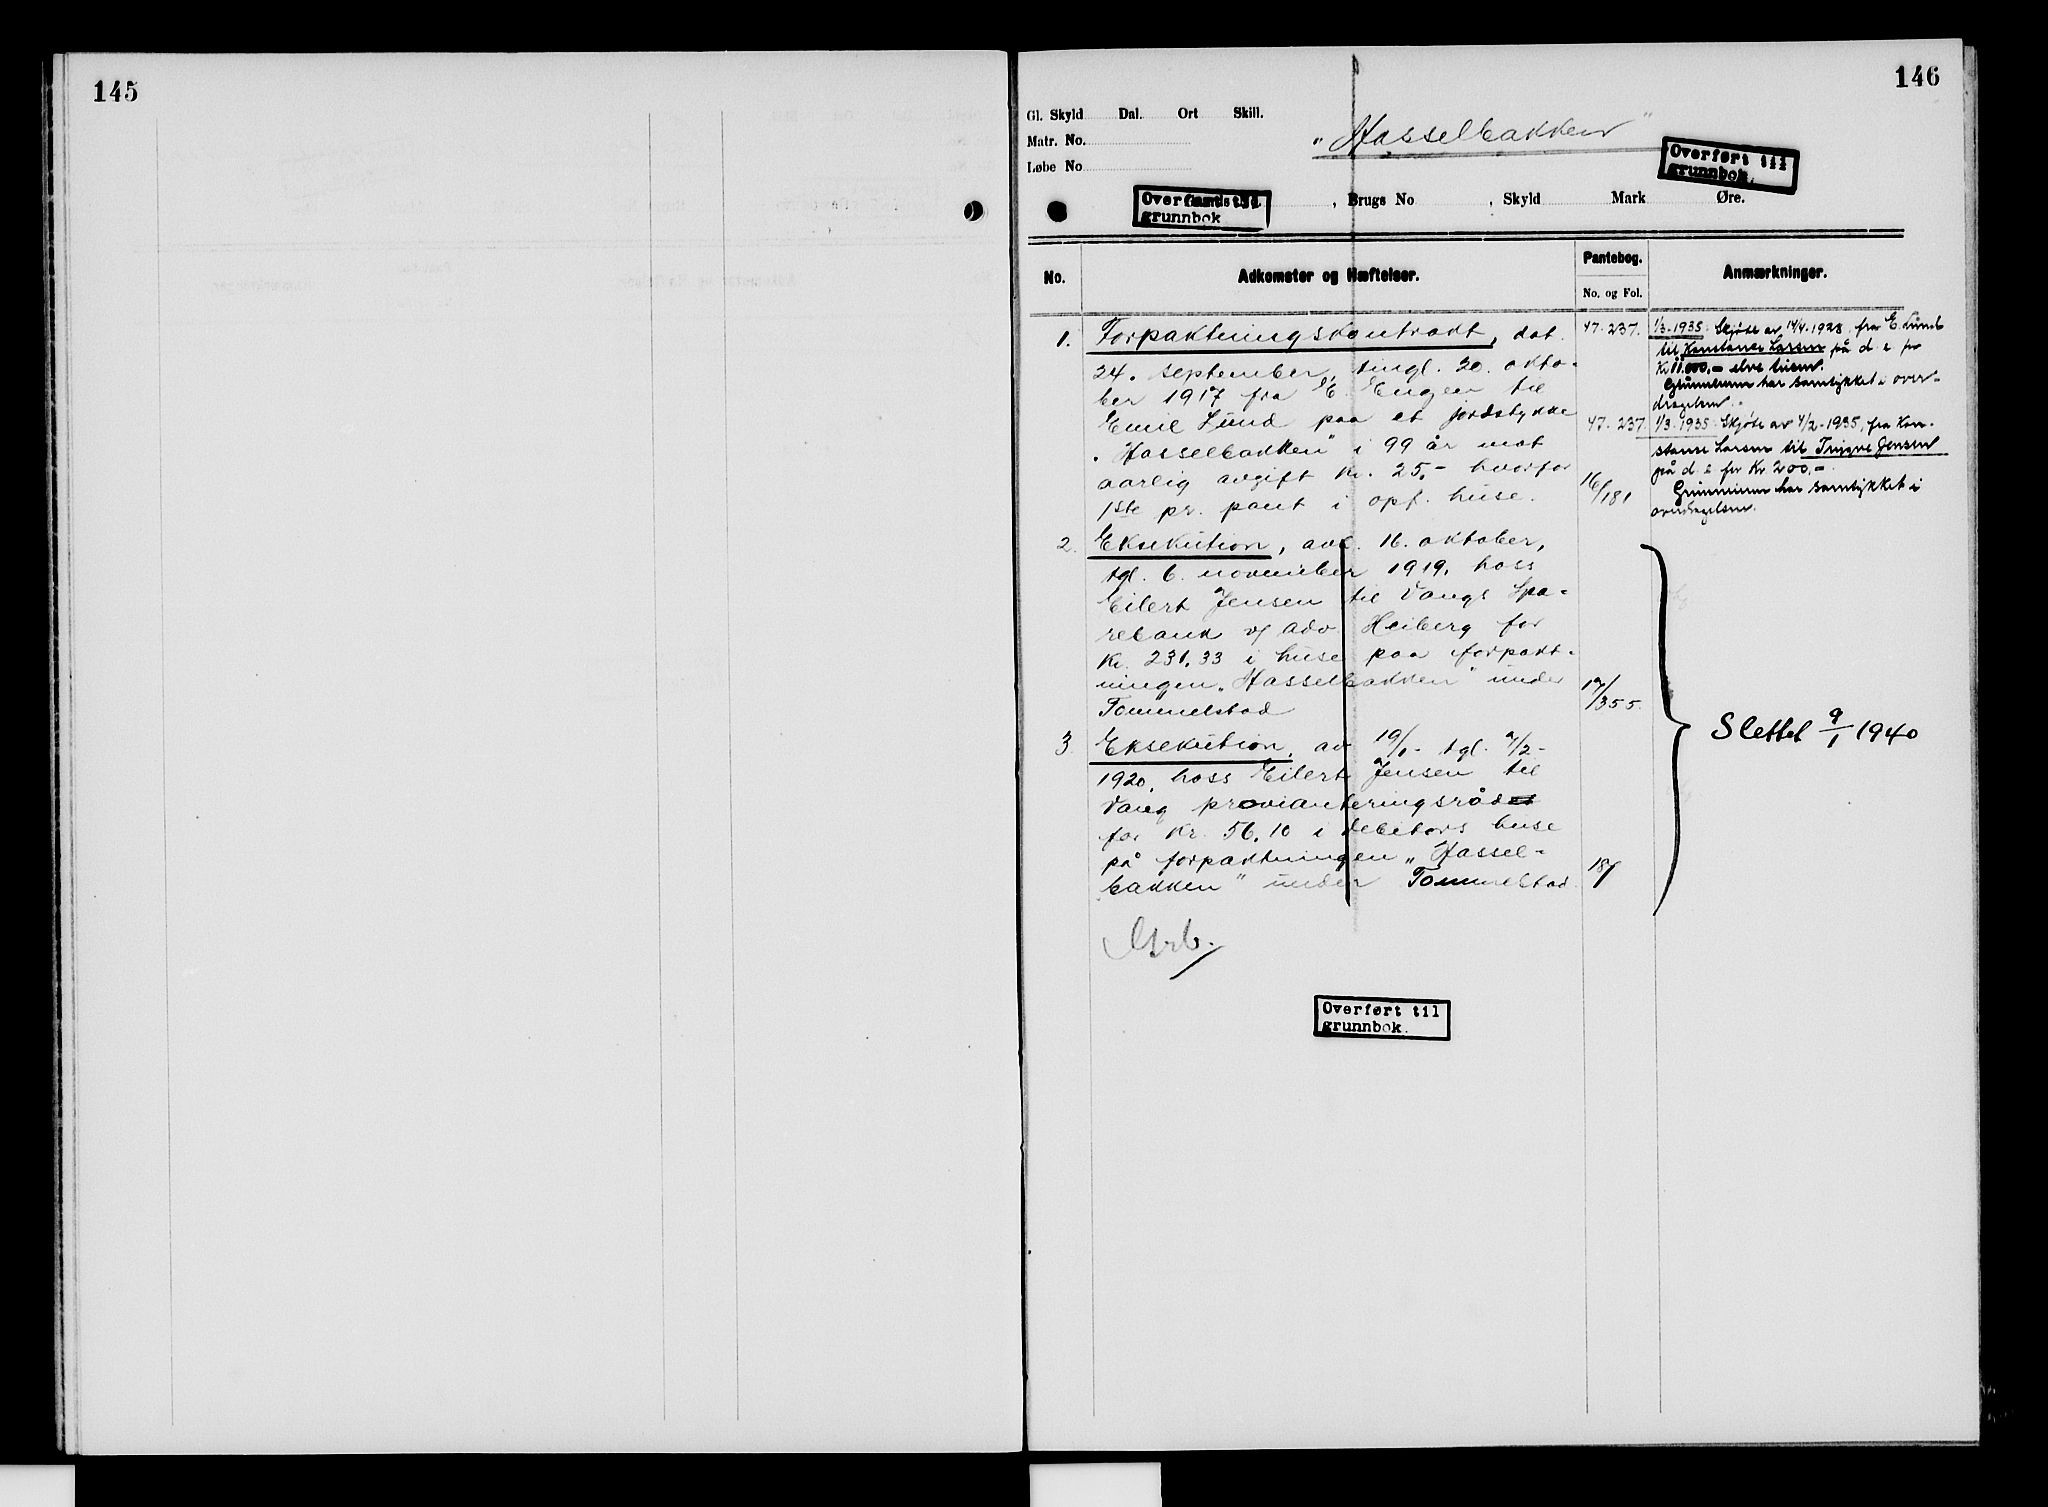 145
146
Gl. Skyld Dal. Ort Skill.
Matr. No.
Løbe No
"Hasselbakken"
Overført til
grunnbok.
Overført til
grunnbok
, Brugs No , Skyld Mark Øre.
No. Adkomster og Hæftelser. Pantebog. Anmærkninger.
No. og Fol.
1. Forpaktningskontrakt, dat.
24. september, tingl. 20. okto-
ber 1917 fra E. Engen til
Emil Lund paa et jordstykke
"Hasselbakken" i 99 år mot
aarlig avgift kr. 25,- hvorfor
1ste pr. pant i opf. huse.
16/181
47-237. 1/3-1935. Skjøte av 14/4-1928 fra E. Lund
til Konstance Larsen på d. e. for
Kr 11.000,- elve tusen.
Grunneieren har samtykket i over-
dragelsen.
47-237 1/3-1935. Skjøte av 4/2-1935, fra Kon-
stanse Larsen til Trygve Jensen
på d. e. for Kr 200.-
Grunneieren har samtykket i
overdragelsen.
2. Eksekution, avh. 16. oktober,
tgl. 6. november 1919, hoss
Eilert Jensen til Vangs Spa-
rebank v/ adv. Heiberg for
kr. 231,33 i huse paa forpakt-
ningen "Hasselbakken" under
Tommelstad
17/355.
3 Eksekution, av 19/1- tgl. 7/2-
1920, hoss Eilert Jensen til
Vang provianteringsråd
for kr. 56,10 i debitors huse
på forpaktningen "Hassel-
bakken" under Tommelstad
18/
Slettet 9/1 1940
Overført til
grunnbok.